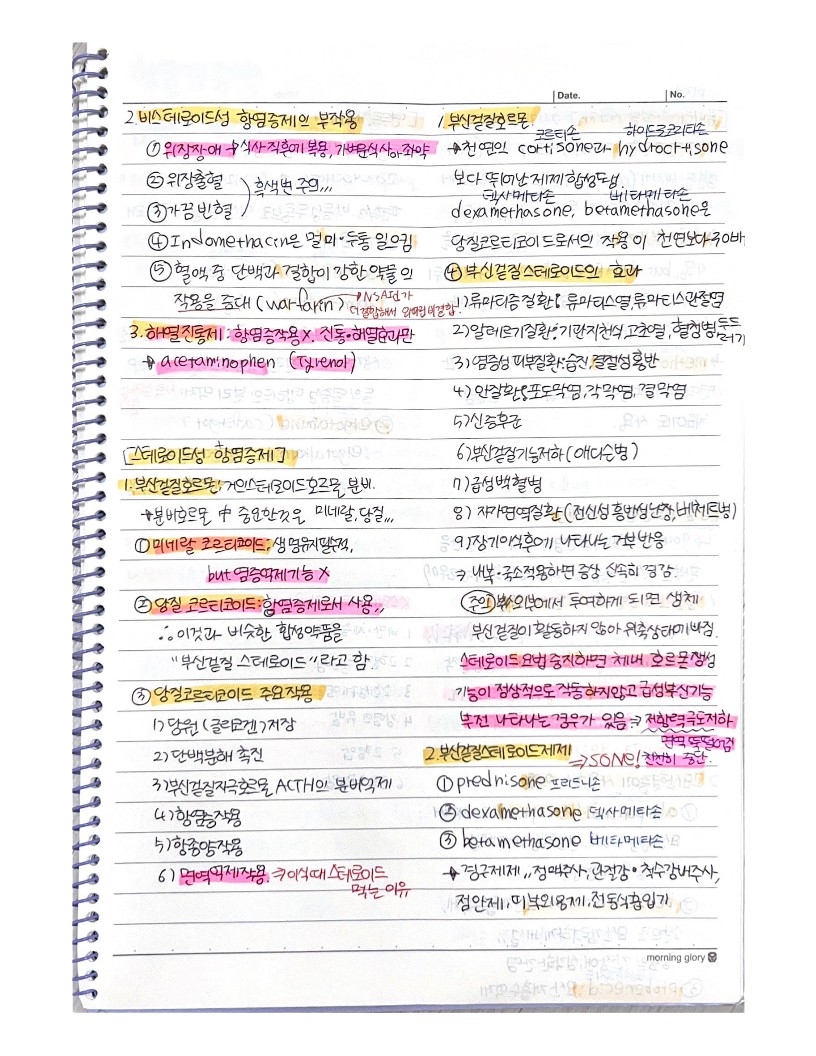 Date.
No.
2. 비스테로이드성 항염증제의 부작용
① 위장장애 → 식사 직후에 복용, 가벼운식사, 좌약
② 위장출혈
③ 가끔 빈혈
흑색변 주의,,,
④ Indomethacin은 멀미·두통 일으킴
⑤ 혈액 중 단백과 결합이 강한 약물의
작용을 증대 (warfarin)
→ NSAId가
더결합해서 와파린이 결합
3. 해열진통제 : 항염증작용X, 진통·해열효과만
→ acetaminophen (Tyrenol)
[스테로이드성 항염증제]
1. 부신겉질호르몬 : 거의 스테로이드호르몬 분비.
→ 분비호르몬 中 중요한것은 미네랄, 당질,,,
① 미네랄 코르티코이드 : 생명유지필수적,
but 염증억제기능 X
② 당질 코르티코이드 : 항염증제로서 사용,,
∴ 이것과 비슷한 합성약품을
"부신겉질 스테로이드" 라고 함.
③ 당질코르티코이드 주요작용
1) 당원 (글리코겐) 저장
2) 단백분해 촉진
3) 부신겉질자극호르몬 ACTH의 분비억제
4) 항염증작용
5) 항종양작용
6) 면역억제작용. ⇒ 이식때 스테로이드
먹는 이유
1. 부신겉질호르몬.
코르티손 하이드로코르티손
→ 천연의 cortisone과 hydrocrtisone
보다 뛰어난 제제 합성도님.
덱사메타손 베타메타손
dexamethasone, betamethasone은
당질코르티코이드로서의 작용이 천연보다 30배
④ 부신겉질스테로이드의 효과
1) 류마티즘 질환 : 류마티스열, 류마티스관절염
2) 알레르기질환 : 기관지천식, 고초열, 혈청병, 두드
러기
3) 염증성 피부질환 : 습진, 결절성홍반
4) 안질환 : 포도막염, 각막염, 결막염
5) 신증후군
6) 부신겉질기능저하 (애디슨병)
7) 급성백혈병
8) 자가면역질환 (전신성 홍반성낭창, 베체트병)
9) 장기이식후에 나타나는 거부반응
⇒ 내복·국소적용하면 증상 신속히 경감.
주의) 밖외부에서 투여하게 되면 생체
부신겉질이 활동하지 않아 위축상태에 빠짐.
스테로이드 요법 중지하면 체내 호르몬 생성
기능이 정상적으로 작동하지않고 급성부신기능
부전 나타나는 경우가 있음 ⇒ 저항력 극도저하
면역 뚝떨어짐
2. 부신겉질스테로이드제제
⇒ SONE! 천천히 중단.
① prednisone 프레드니손
② dexamethasone 덱사메타손
③ betamethasone 베타메타손
→ 경구제제,, 정맥주사, 관절강·척수강내주사,
점안제, 피부외용제, 전동식흡입기
morning glory